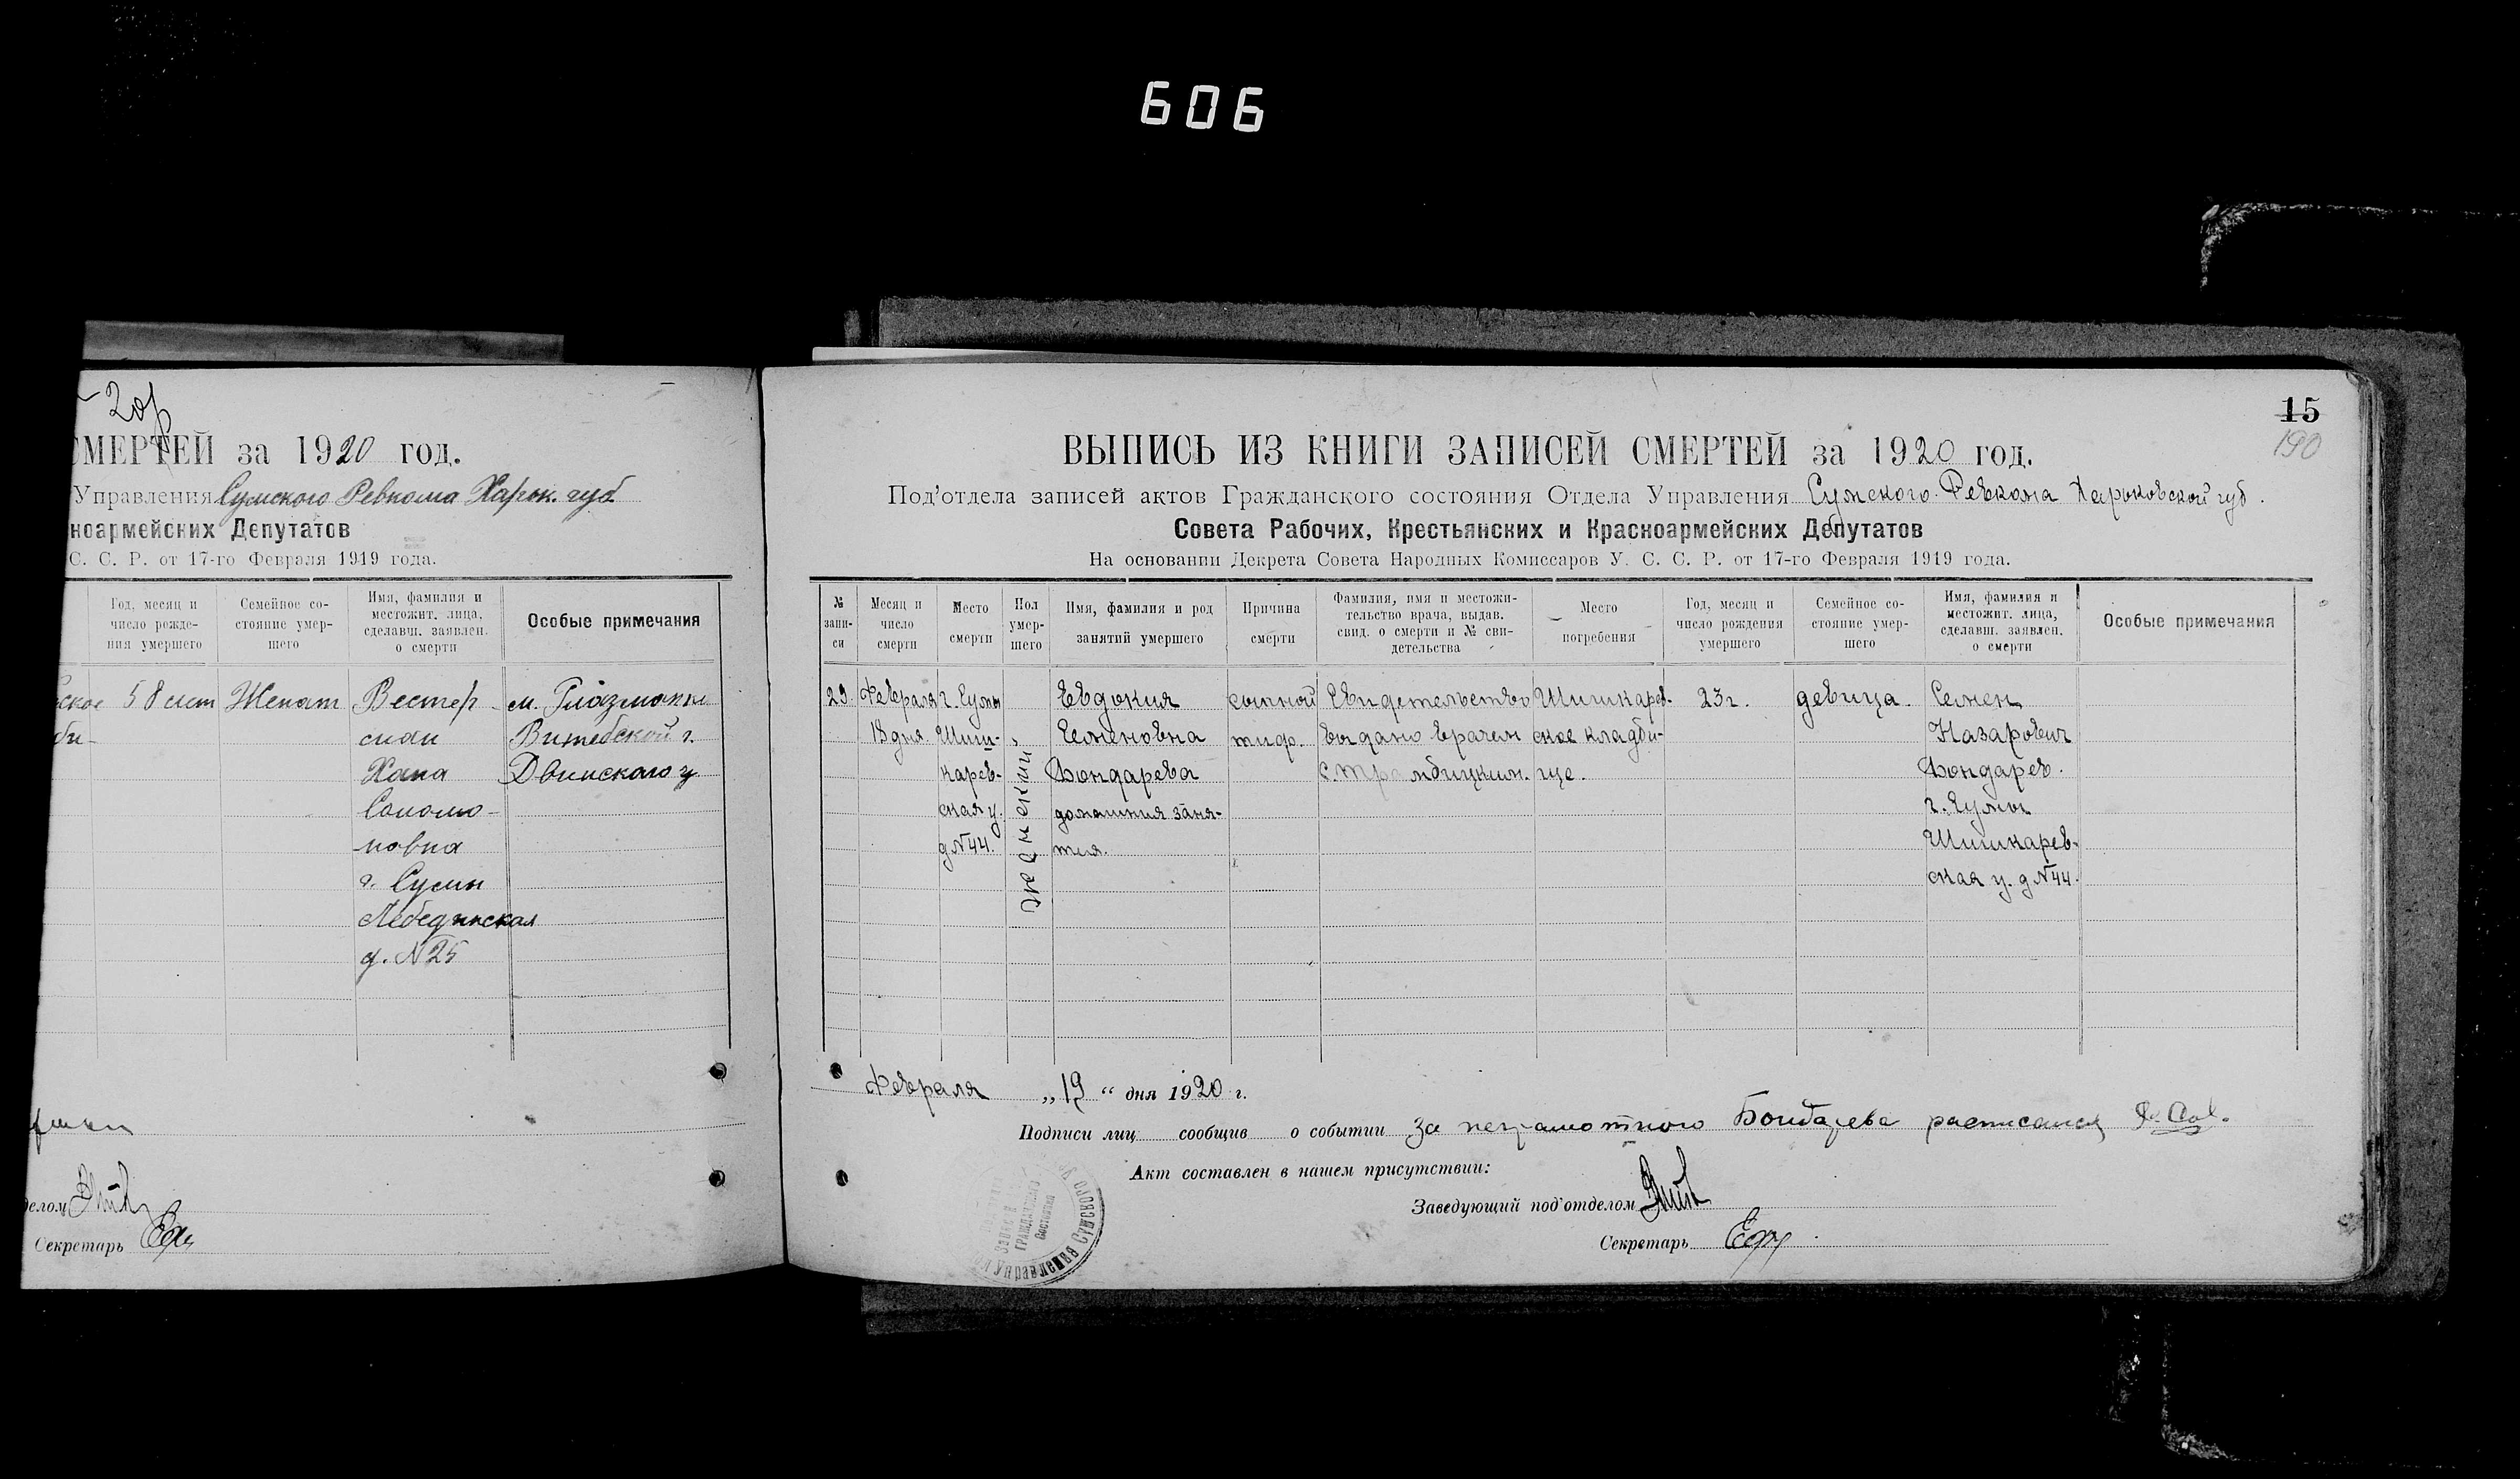 606
20р
СМЕРТЕЙ за 1920 год.
Управления Сумского Ревкома Харьк. губ
ноармейских Депутатов
С. С. Р. от 17-го Февраля 1919 года.
Год, месяц и число рожде-ния умершего
Семейное со-стояние умер-шего
Имя, фамилия и местожит. лица, сделавш. заявлен. о смерти
Особые примечания
ское 58 лет Женат Вестер- м. Глазманы
би- сман Витебской г.
Хана Двинскаго у
Соломо-
новна
г. Сумы
Лебединская
д. N 25
делом
Секретарь
15
190
ВЫПИСЬ ИЗ КНИГИ ЗАПИСЕЙ СМЕРТЕЙ за 1920 год.
Под'отдела записей актов Гражданского состояния Отдела Управления Сумского Ревкома Харьковской губ.
Совета Рабочих, Крестьянских и Красноармейских Депутатов
На основании Декрета Совета Народных Комиссаров У. С. С. Р. от 17-го Февраля 1919 года.
№ запи-си
Месяц и число смерти
Место смерти
Пол умер-шего
Имя, фамилия и род занятий умершего
Причина смерти
Фамилия, имя и местожи-тельство врача, выдав. свид. о смерти и № сви-детельства
Место погребения
Год, месяц и число рождения умершего
Семейное со-стояние умер-шего
Имя, фамилия и местожит. лица, сделавш. заявлен. о смерти
Особые примечания
29. Февраля г. Сумы Евдокия сыпной Свидетельство Шишкарев- 23 г. девица. Семен
18 дня Шиш- Семеновна тиф. выдано врачем ское кладби- Назарович
карев- Бондарева ще. Бондарев.
ская у. домашния заня- г. Сумы
д N 44. тия. Шишкарев-
ская у. д N 44.
женский
Февраля „19“ дня 1920 г.
Подписи лиц сообщив о событии За неграмотного Бондарева расписался
Акт составлен в нашем присутствии:
Заведующий под'отделом
Секретарь
Записи
Гражданского
Состояния
Управления Сумского